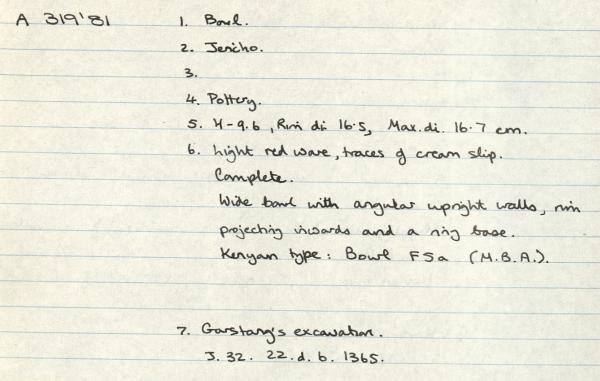 A 319'81 1. Bowl.
2. Jericho.
3.
4. Pottery.
5. H-9.6, Rim di. 16.5, Max.di. 16.7 cm.
6. Light red ware, traces of cream slip.
Complete.
Wide bowl with angular upright walls, rim
projecting inwards and a ring base.
Kenyan type: Bowl F5a (M.B.A.).
7. Garstang's excavation.
J. 32. 22.d. b. 1365.